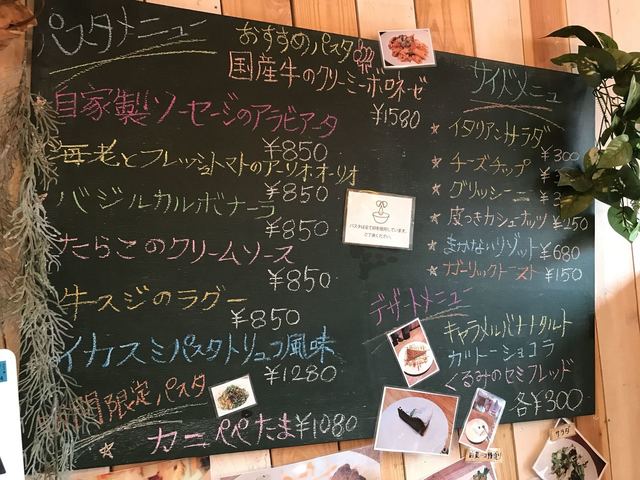 パスタメニュー
おすすめパスタ
国産牛のクリーミーボロネーゼ
¥1580
自家製ソーセージのアラビアータ
¥850
海老とフレッシュトマトのアーリオオーリオ
¥850
バジルカルボナーラ
¥850
たらこのクリームソース
¥850
牛スジのラグー
¥850
イカスミパスタトリュフ風味
¥1280
期間限定パスタ
カニペペたま¥1080
サイドメニュー
イタリアンサラダ
¥300
チーズチップ
グリッシーニ
皮つきカシューナッツ ¥250
まかないリゾット ¥680
ガーリックトースト ¥150
デザートメニュー
キャラメルバナナタルト
ガトーショコラ
くるみのセミフレッド
各¥300
サラダ